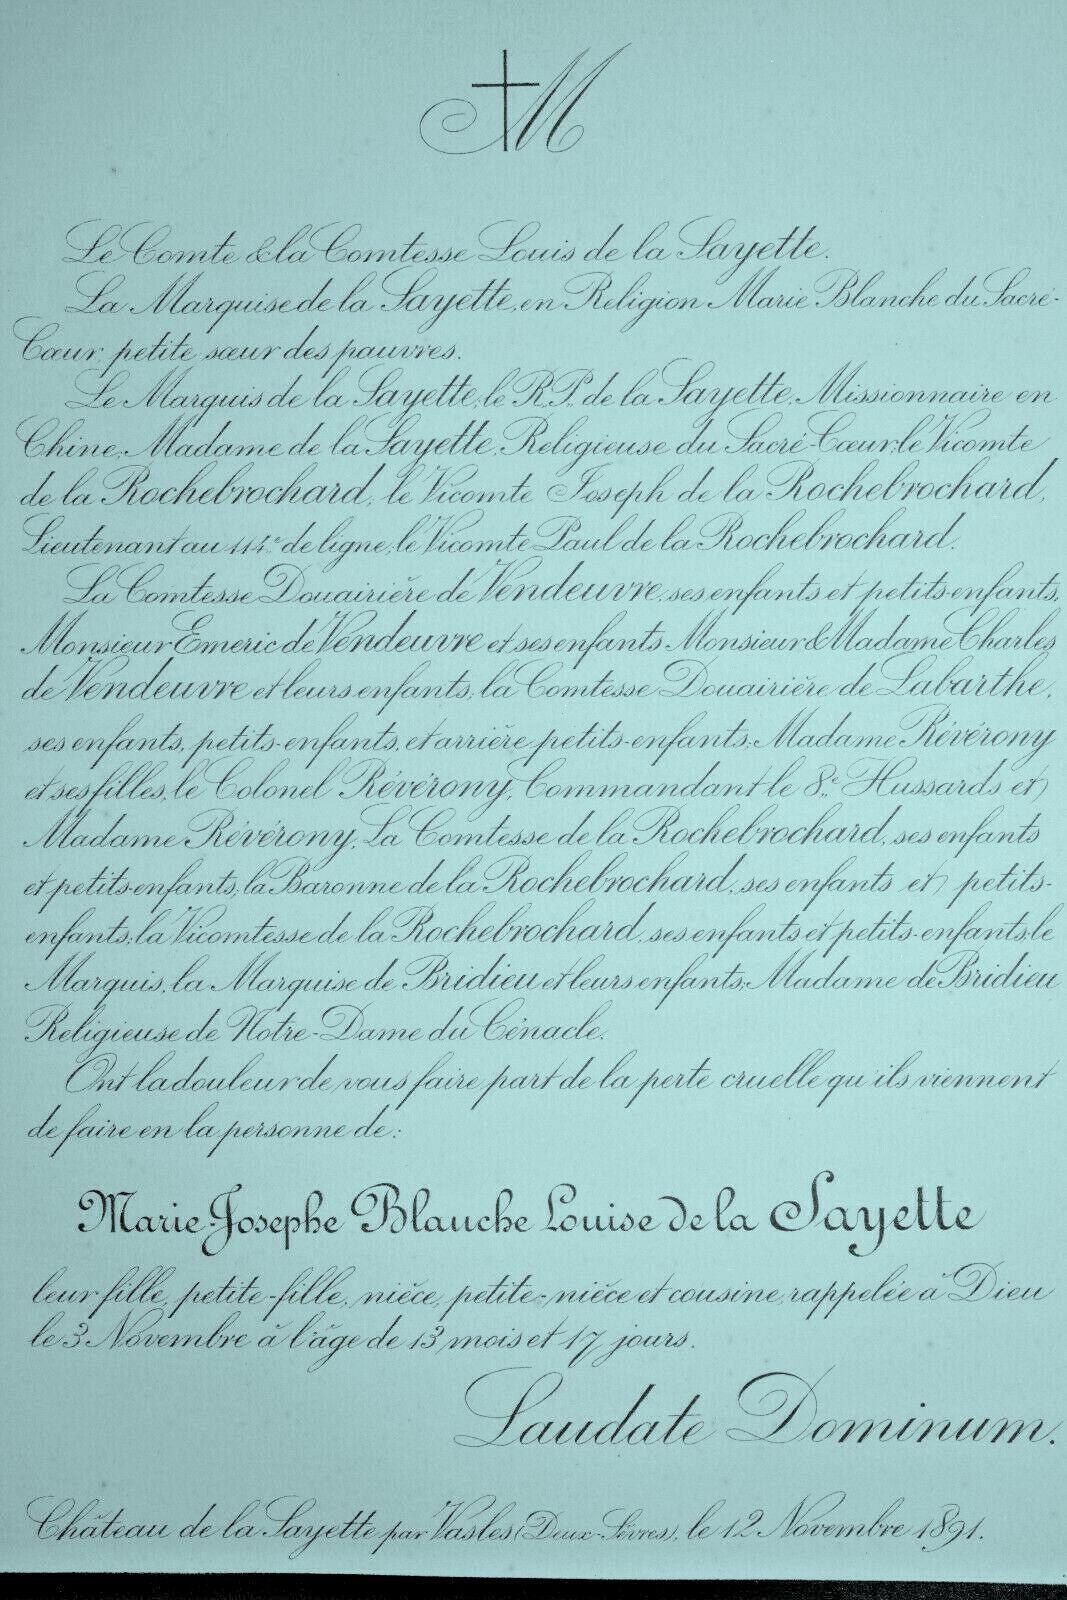 M
Le Comte & la Comtesse Louis de la Sayette.
La Marquise de la Sayette, en Religion Marie Blanche du Sacré-
Cœur, petite sœur des pauvres.
Le Marquis de la Sayette, le R.P. de la Sayette, Missionnaire en
Chine, Madame de la Sayette, Religieuse du Sacré-Cœur, le Vicomte
de la Rochebrochard, le Vicomte Joseph de la Rochebrochard,
Lieutenant au 114e de ligne, le Vicomte Paul de la Rochebrochard.
La Comtesse Douairière de Vendeuvre, ses enfants et petits-enfants,
Monsieur Emeric de Vendeuvre et ses enfants, Monsieur & Madame Charles
de Vendeuvre et leurs enfants, la Comtesse Douairière de Labarthe,
ses enfants, petits-enfants, et arrière petits-enfants, Madame Révérony
et ses filles, le Colonel Révérony, Commandant le 8e Hussards et
Madame Révérony, La Comtesse de la Rochebrochard, ses enfants
et petits-enfants, la Baronne de la Rochebrochard, ses enfants et petits-
enfants, la Vicomtesse de la Rochebrochard, ses enfants et petits-enfants, le
Marquis, la Marquise de Bridieu et leurs enfants, Madame de Bridieu
Religieuse de Notre-Dame du Cénacle.
Ont la douleur de vous faire part de la perte cruelle qu'ils viennent
de faire en la personne de:
Marie-Josephe Blanche Louise de la Sayette
leur fille, petite-fille, nièce, petite-nièce et cousine, rappelée à Dieu
le 3 Novembre à l'âge de 13 mois et 17 jours.
Laudate Dominum.
Château de la Sayette par Vasles (Deux-Sèvres), le 12 Novembre 1891.